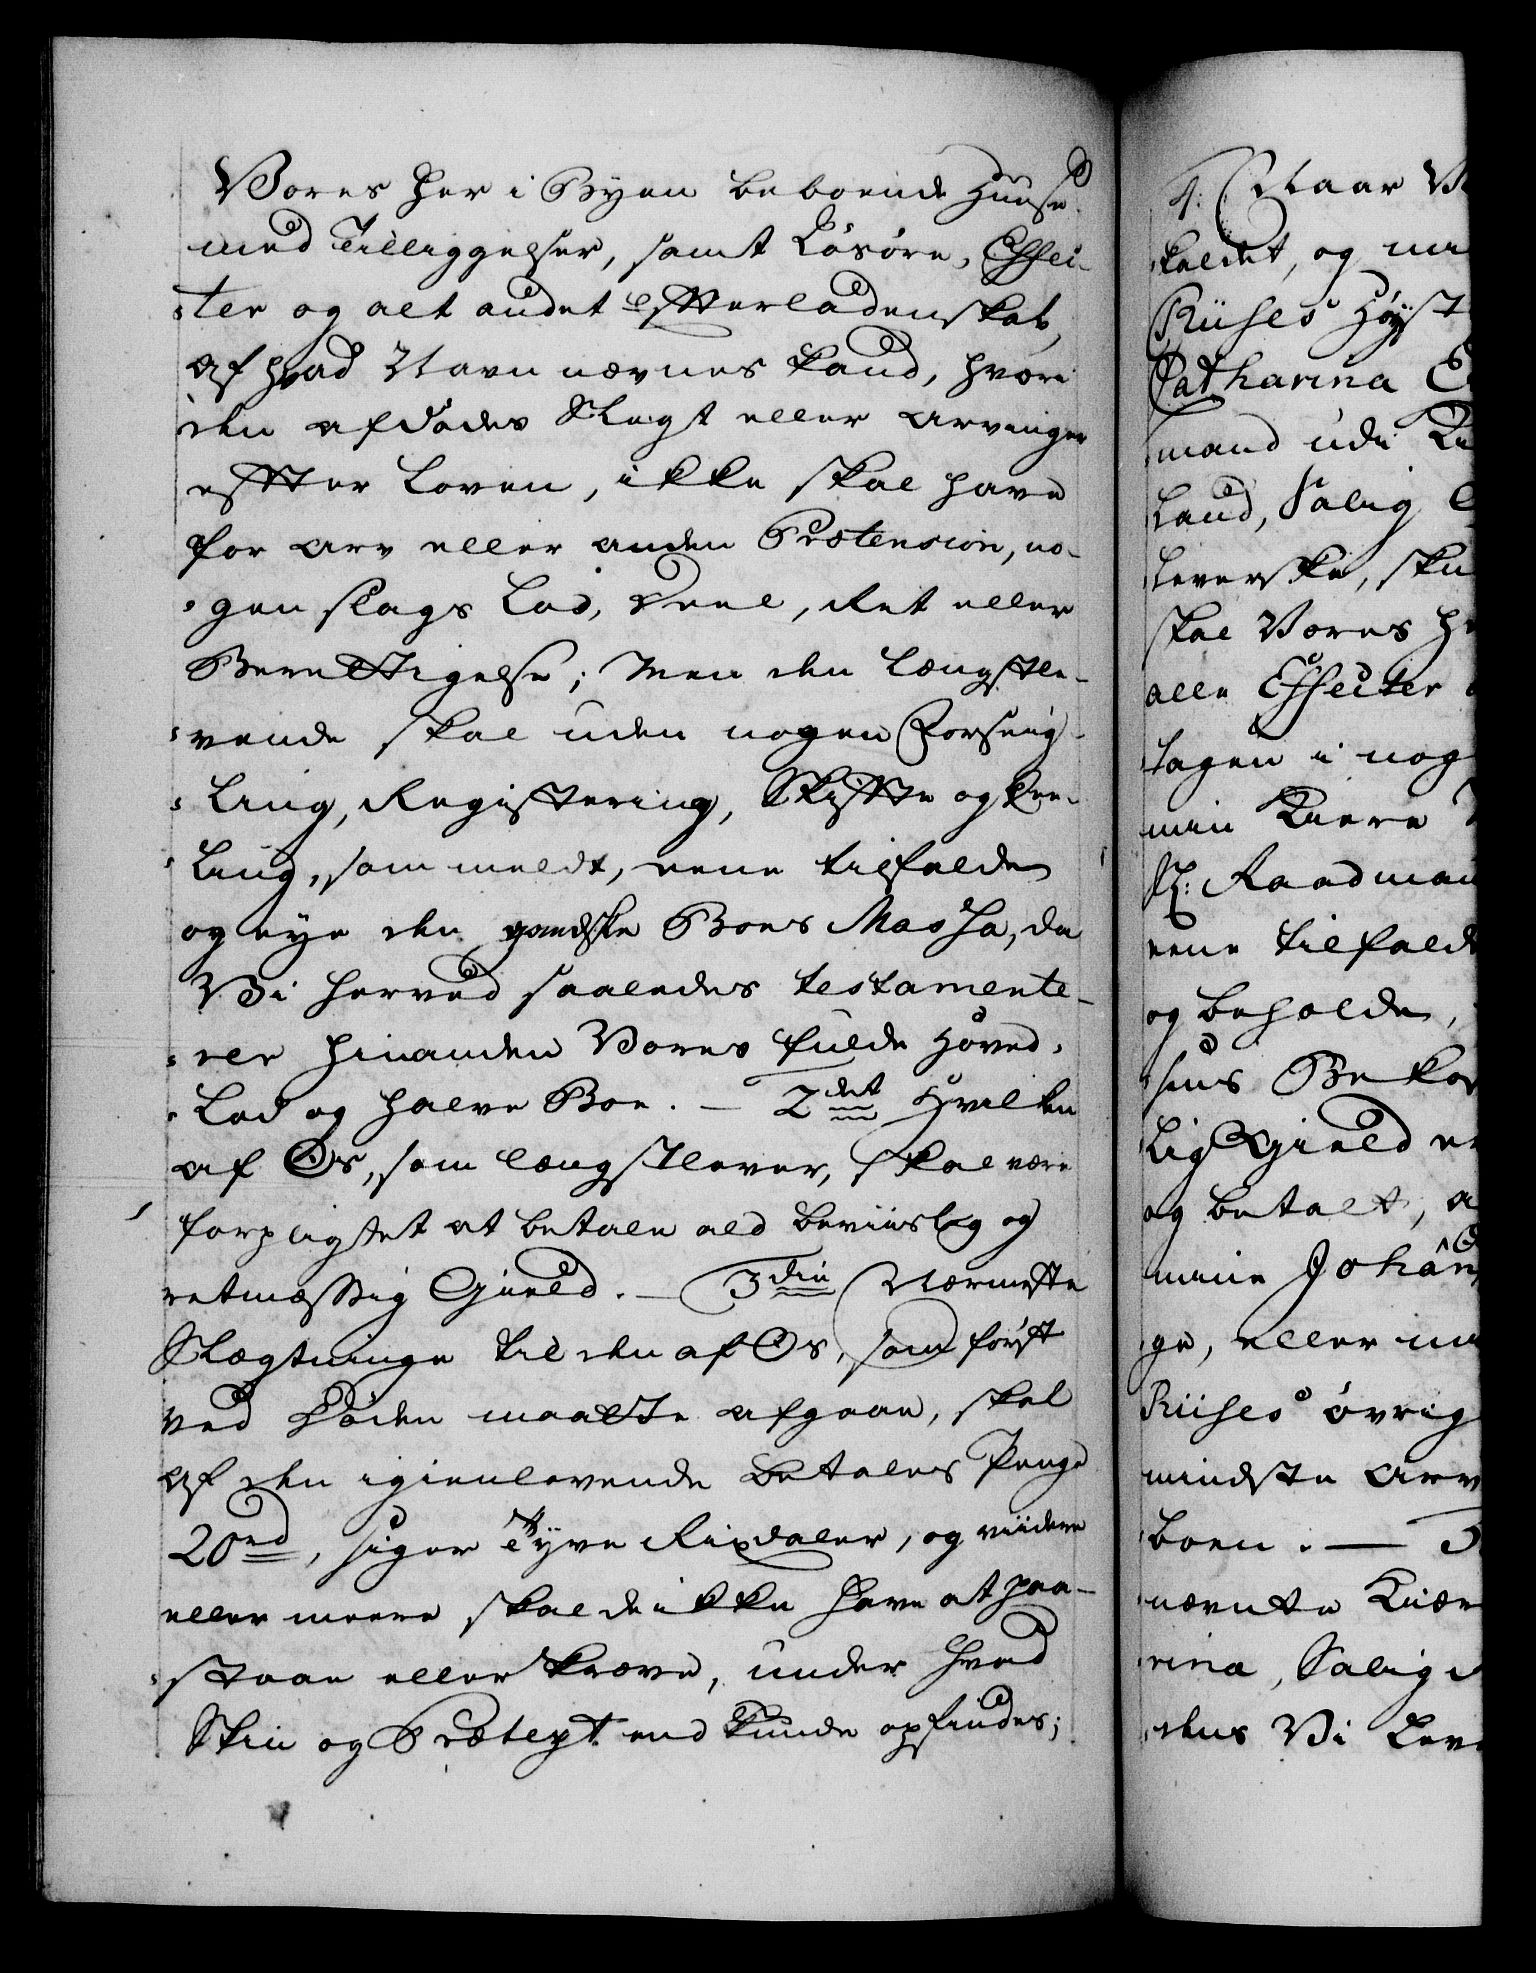 Vores her i Byen beboende Huuse
med Tilliggelser, samt Løsøre, Effec-
ter og alt andet efterladenskab,
af hvad Navn nævnes kand, hvori
den afdødes Slegt eller Arvinger
effter Loven, ikke skal have
for Arv eller anden Prætension, no-
gen slags Lod, Deel, Ret eller
Berettigelse; Men den længstle-
vende skal uden nogen Forseig-
ling, Registering, Skiftte og Dee-
ling, som meldt, eene tilfalde
og eye den gandske Boes Massa, da
Vi herved saaledes testamente-
rer hinanden Vores fulde Hoved-
Lod og halve Boe. — 2det Hvilken
af Os, som længstlever, skal være
forpligtet at betale all beviislig og
retmæssig Gield. — 3die Nærmeste
Slægtninge til den af Os, som først
ved Døden maatte afgaae, skal
af den igienlevende betales Penge
20rd, siger Tyve Rixdaler, og viidere
eller meere skal de ikke have at paa-
staae eller kræve, under hvad
Skin og Prætext end kunde opfindes;
4: Naar
kaldet, og
Riises Høyst
Catharina
mand udi
Land, Salig
leverske,
skal Vores
alle Effecter
tagen i nog
min Kiere
Sl: Raadman
eene tilfalde
og beholde,
huus Bekos
lig Gield
og betalt,
mine Johan
ge, eller
Riises øvrig
mindste Arv
boen. —
nævnte Kiær
rina, Salig
dens Vi Lev